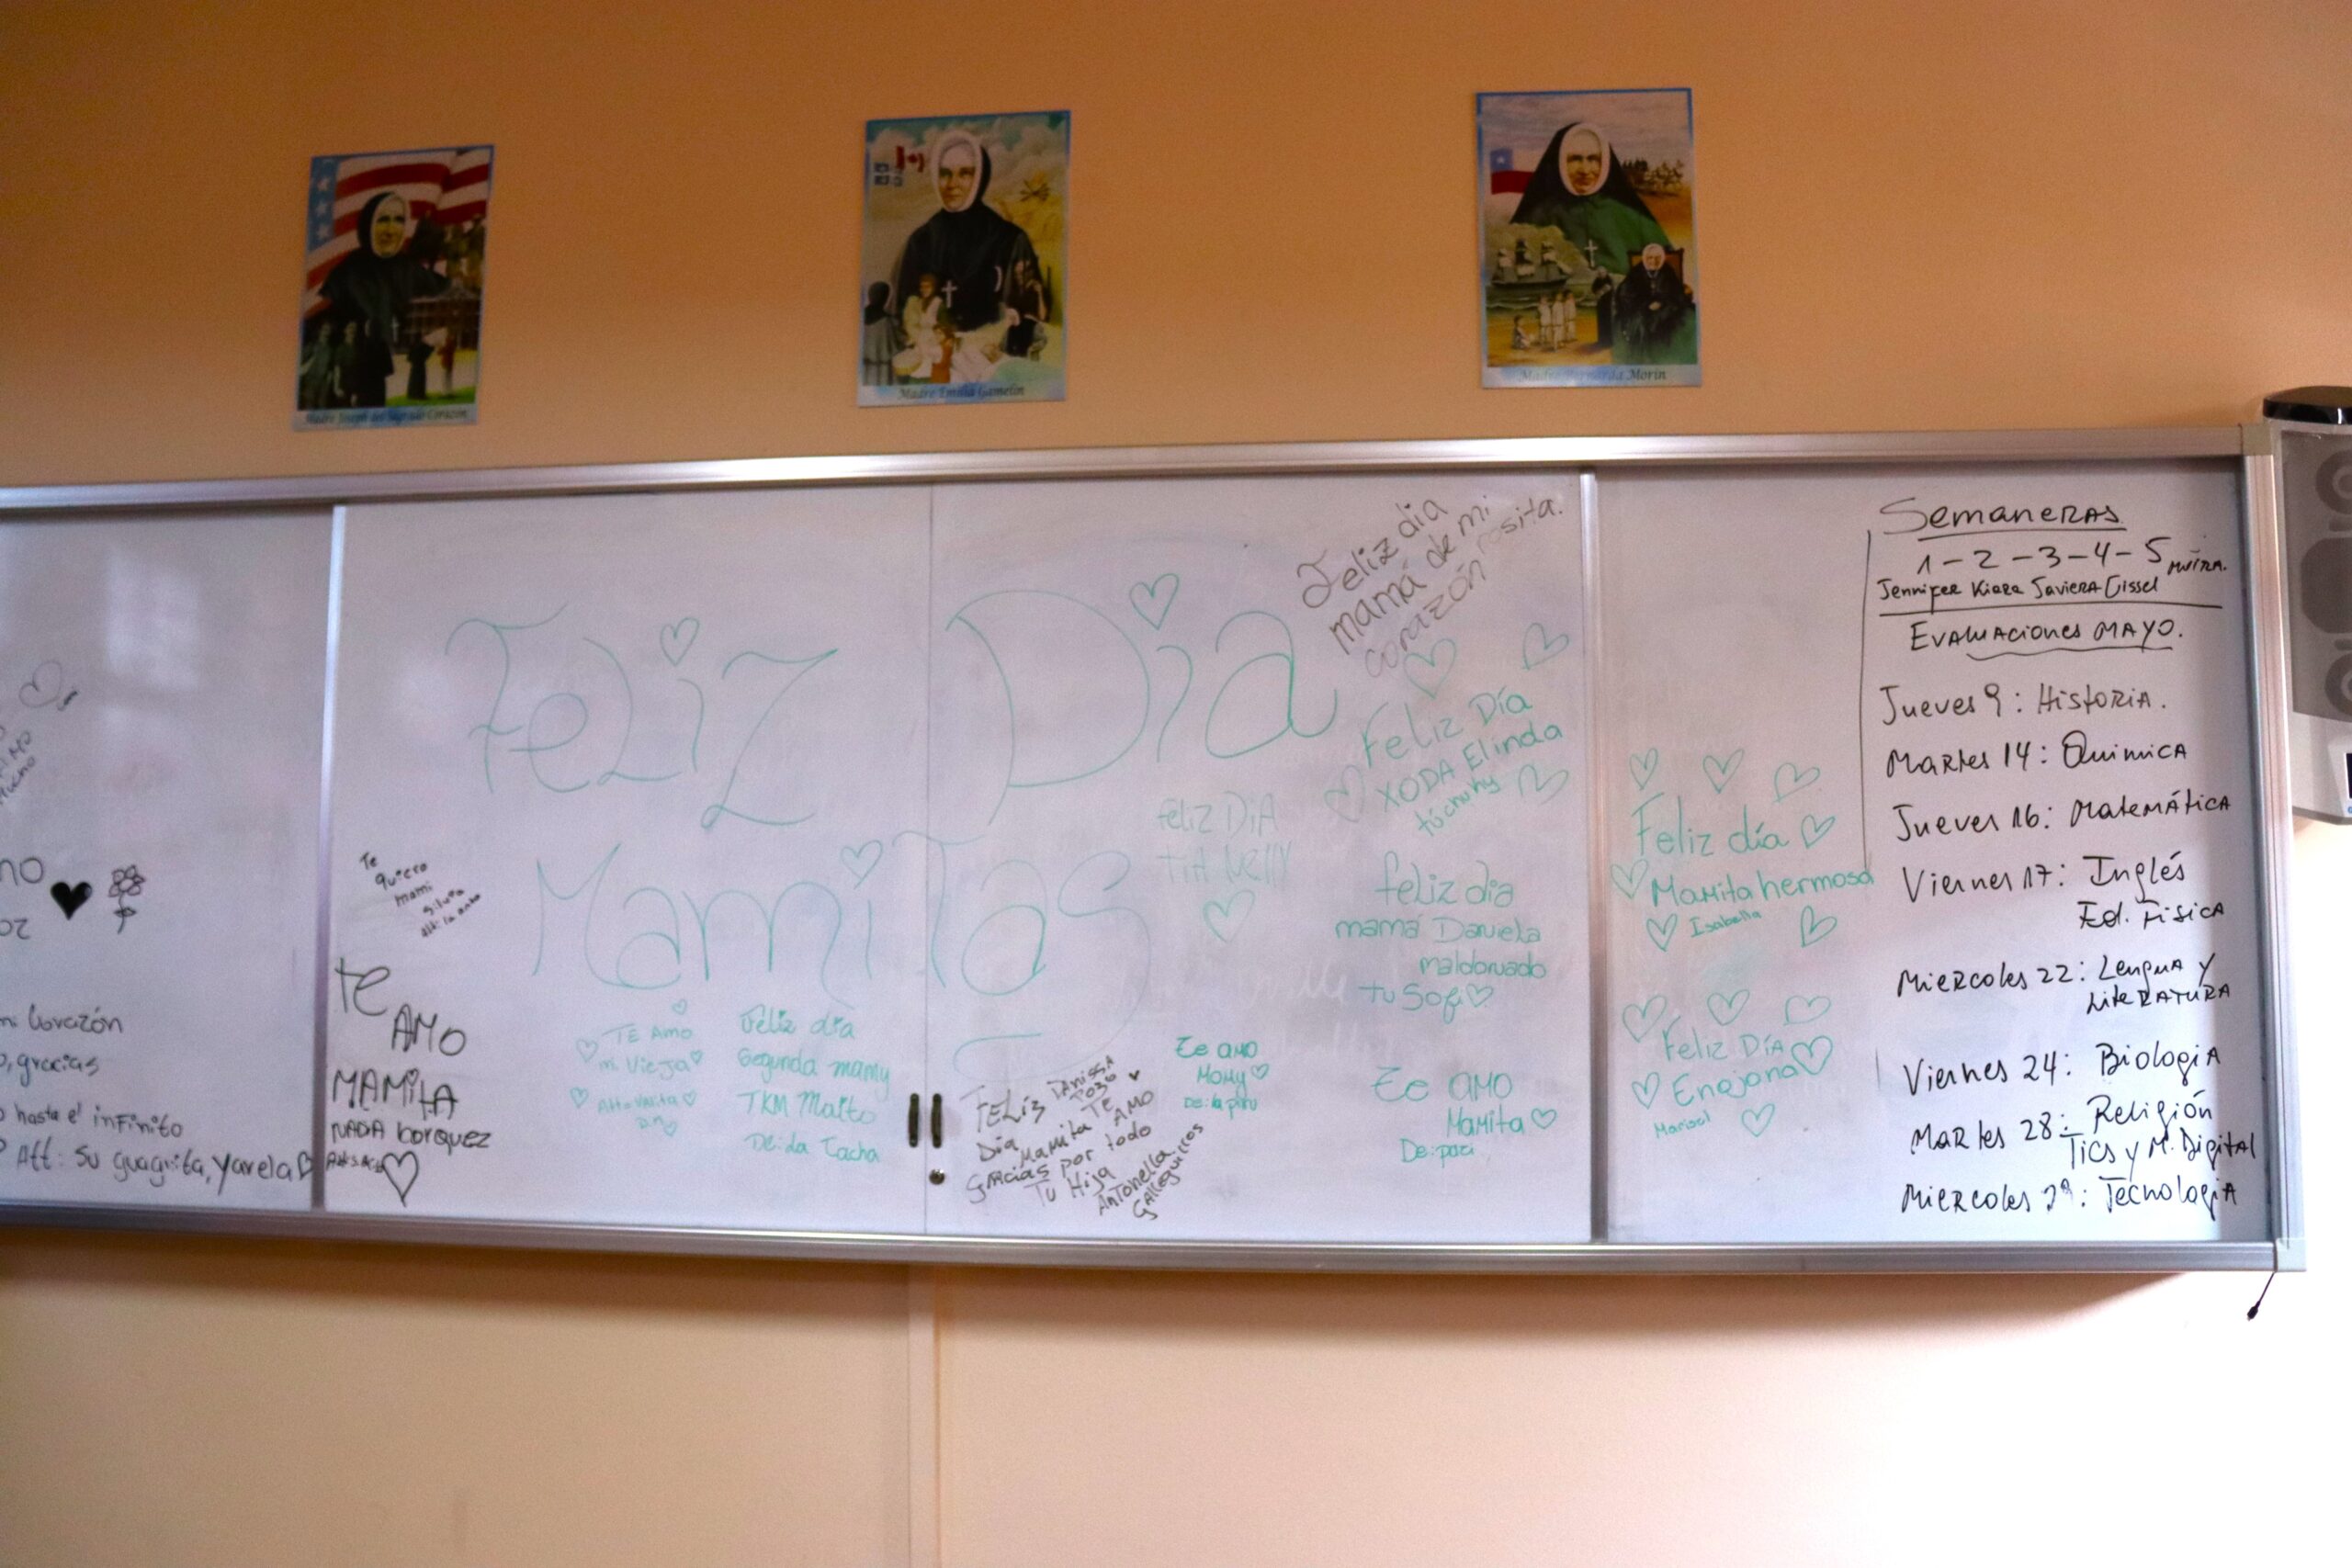 Madre Joseph del Sagrado Corazón
Madre Emilia Gamelin
Madre Bernarda Morin
Feliz Día
Mamitas
AMO
mucho
mi Corazón
, gracias
hasta el infinito
Att: su guaguita, Yarela
Te
quiero
mami
Silvia
Te
AMO
MAMITA
NADA borquez
TE AMO
mi vieja
Feliz dia
Segunda mamy
TKM Maito
De: la Cacha
Feliz dia
mamá de mi
corazón rosita.
Feliz Día
XODA Elinda
tú chuhy
feliz DIA
TIA NELLY
feliz dia
mamá Daniela
maldonado
tu Sofi
FELIZ
Día Mamita TE AMO
Gracias por todo
Tu Hija
Antonella
Galleguillos
Te amo
Momy
Te amo
Mamita
De: paci
Feliz día
Mamita hermosa
Isabella
Feliz Día
Enajona
Marisol
Semaneras
1-2-3-4-5
Jennifer Kiara Javiera Gissel
Evaluaciones MAYO.
Jueves 9: Historia.
Martes 14: Quimica
Jueves 16: Matemática
Viernes 17: Inglés
Ed. Fisica
Miercoles 22: Lengua y
Literatura
Viernes 24: Biologia
Martes 28: Religión
Tics y M. Digital
Miercoles 29: Tecnologia